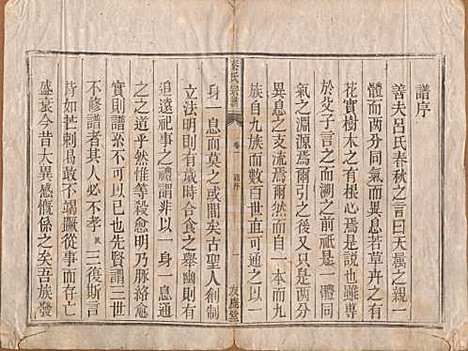 譜序
善夫呂氏春秋之言曰天屬之親一
體而两分同氣而異息若草卉之有
花實樹木之有根心言易形也雖專
於父子言之而溯之於前祗是一體
之之淵源焉爾引之後又只是两分
異息之支流焉爾然而自一本而九
族自九族而數百世直可通之以一
秦氏宗譜
卷一
譜序
一
友鹿堂
身一息而莫之或閒矣古聖人創制
立法明則有歲時合食之舉幽則有
追遠祀事之禮謂非以一身一息通
之之道乎然惟等殺愈明乃脈絡愈
實則譜尚不可已也先賢謂三世
不修譜者其人必不孝 三復斯言
有如芒刺曷敢不竭蹶從事而存亡
盛衰今昔大異感慨係之矣吾族發